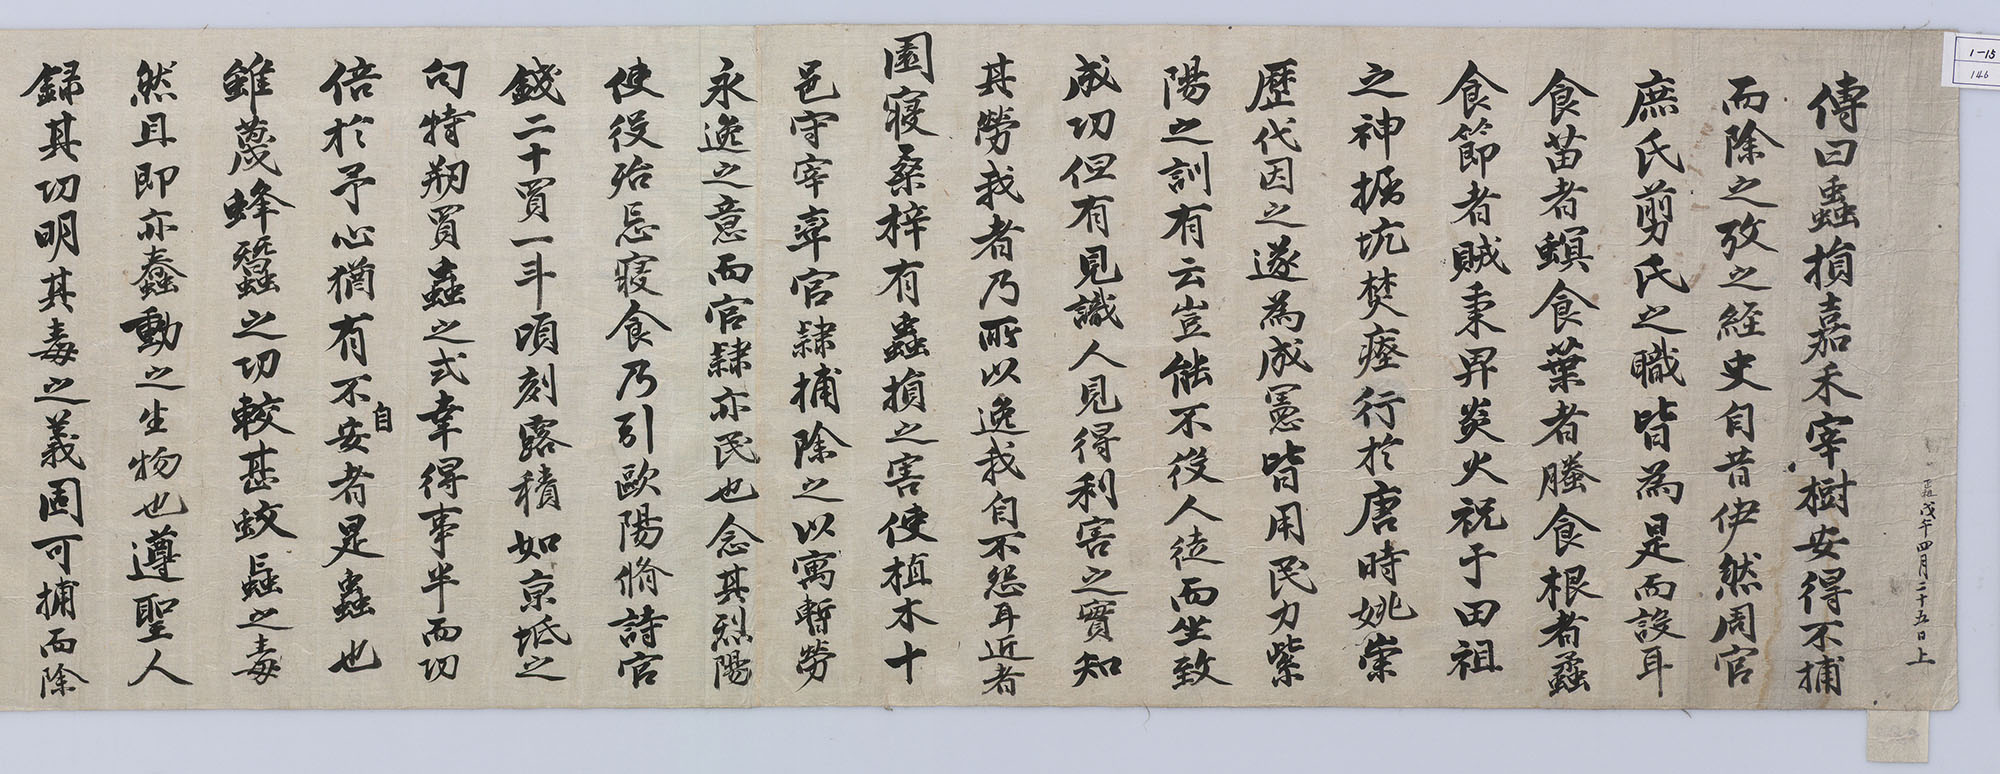 正祖戊午四月二十五日上
傳曰蟲損嘉禾宰樹安得不捕
而除之攷之経史自昔伊然周官
庶氏剪氏之職皆為是而設耳
食苗者螟食葉者螣食根者蟊
食節者賊秉畀炎火祝于田祖
之神掘坑焚瘞行於唐時姚崇
歷代因之遂為成憲皆用民力紫
陽之訓有云豈能不役人徒而坐致
成功但有見識人見得利害之實知
其勞我者乃所以逸我自不怨耳近者
園寢桑梓有蟲損之害使植木十
邑守宰率官隷捕除之以寓暫勞
永逸之意而官隷亦民也念其烈陽
使役殆忘寢食乃引歐陽脩詩官
錢二十買一斗頃刻露積如京坻之
句特刱買蟲之式幸得事半而功
倍於予心猶有不自安者是蟲也
雖蔑蜂蠶之功較甚蚊蝱之毒
然且即亦蠢動之生物也遵聖人
錄其功明其毒之義固可捕而除
1-15
146